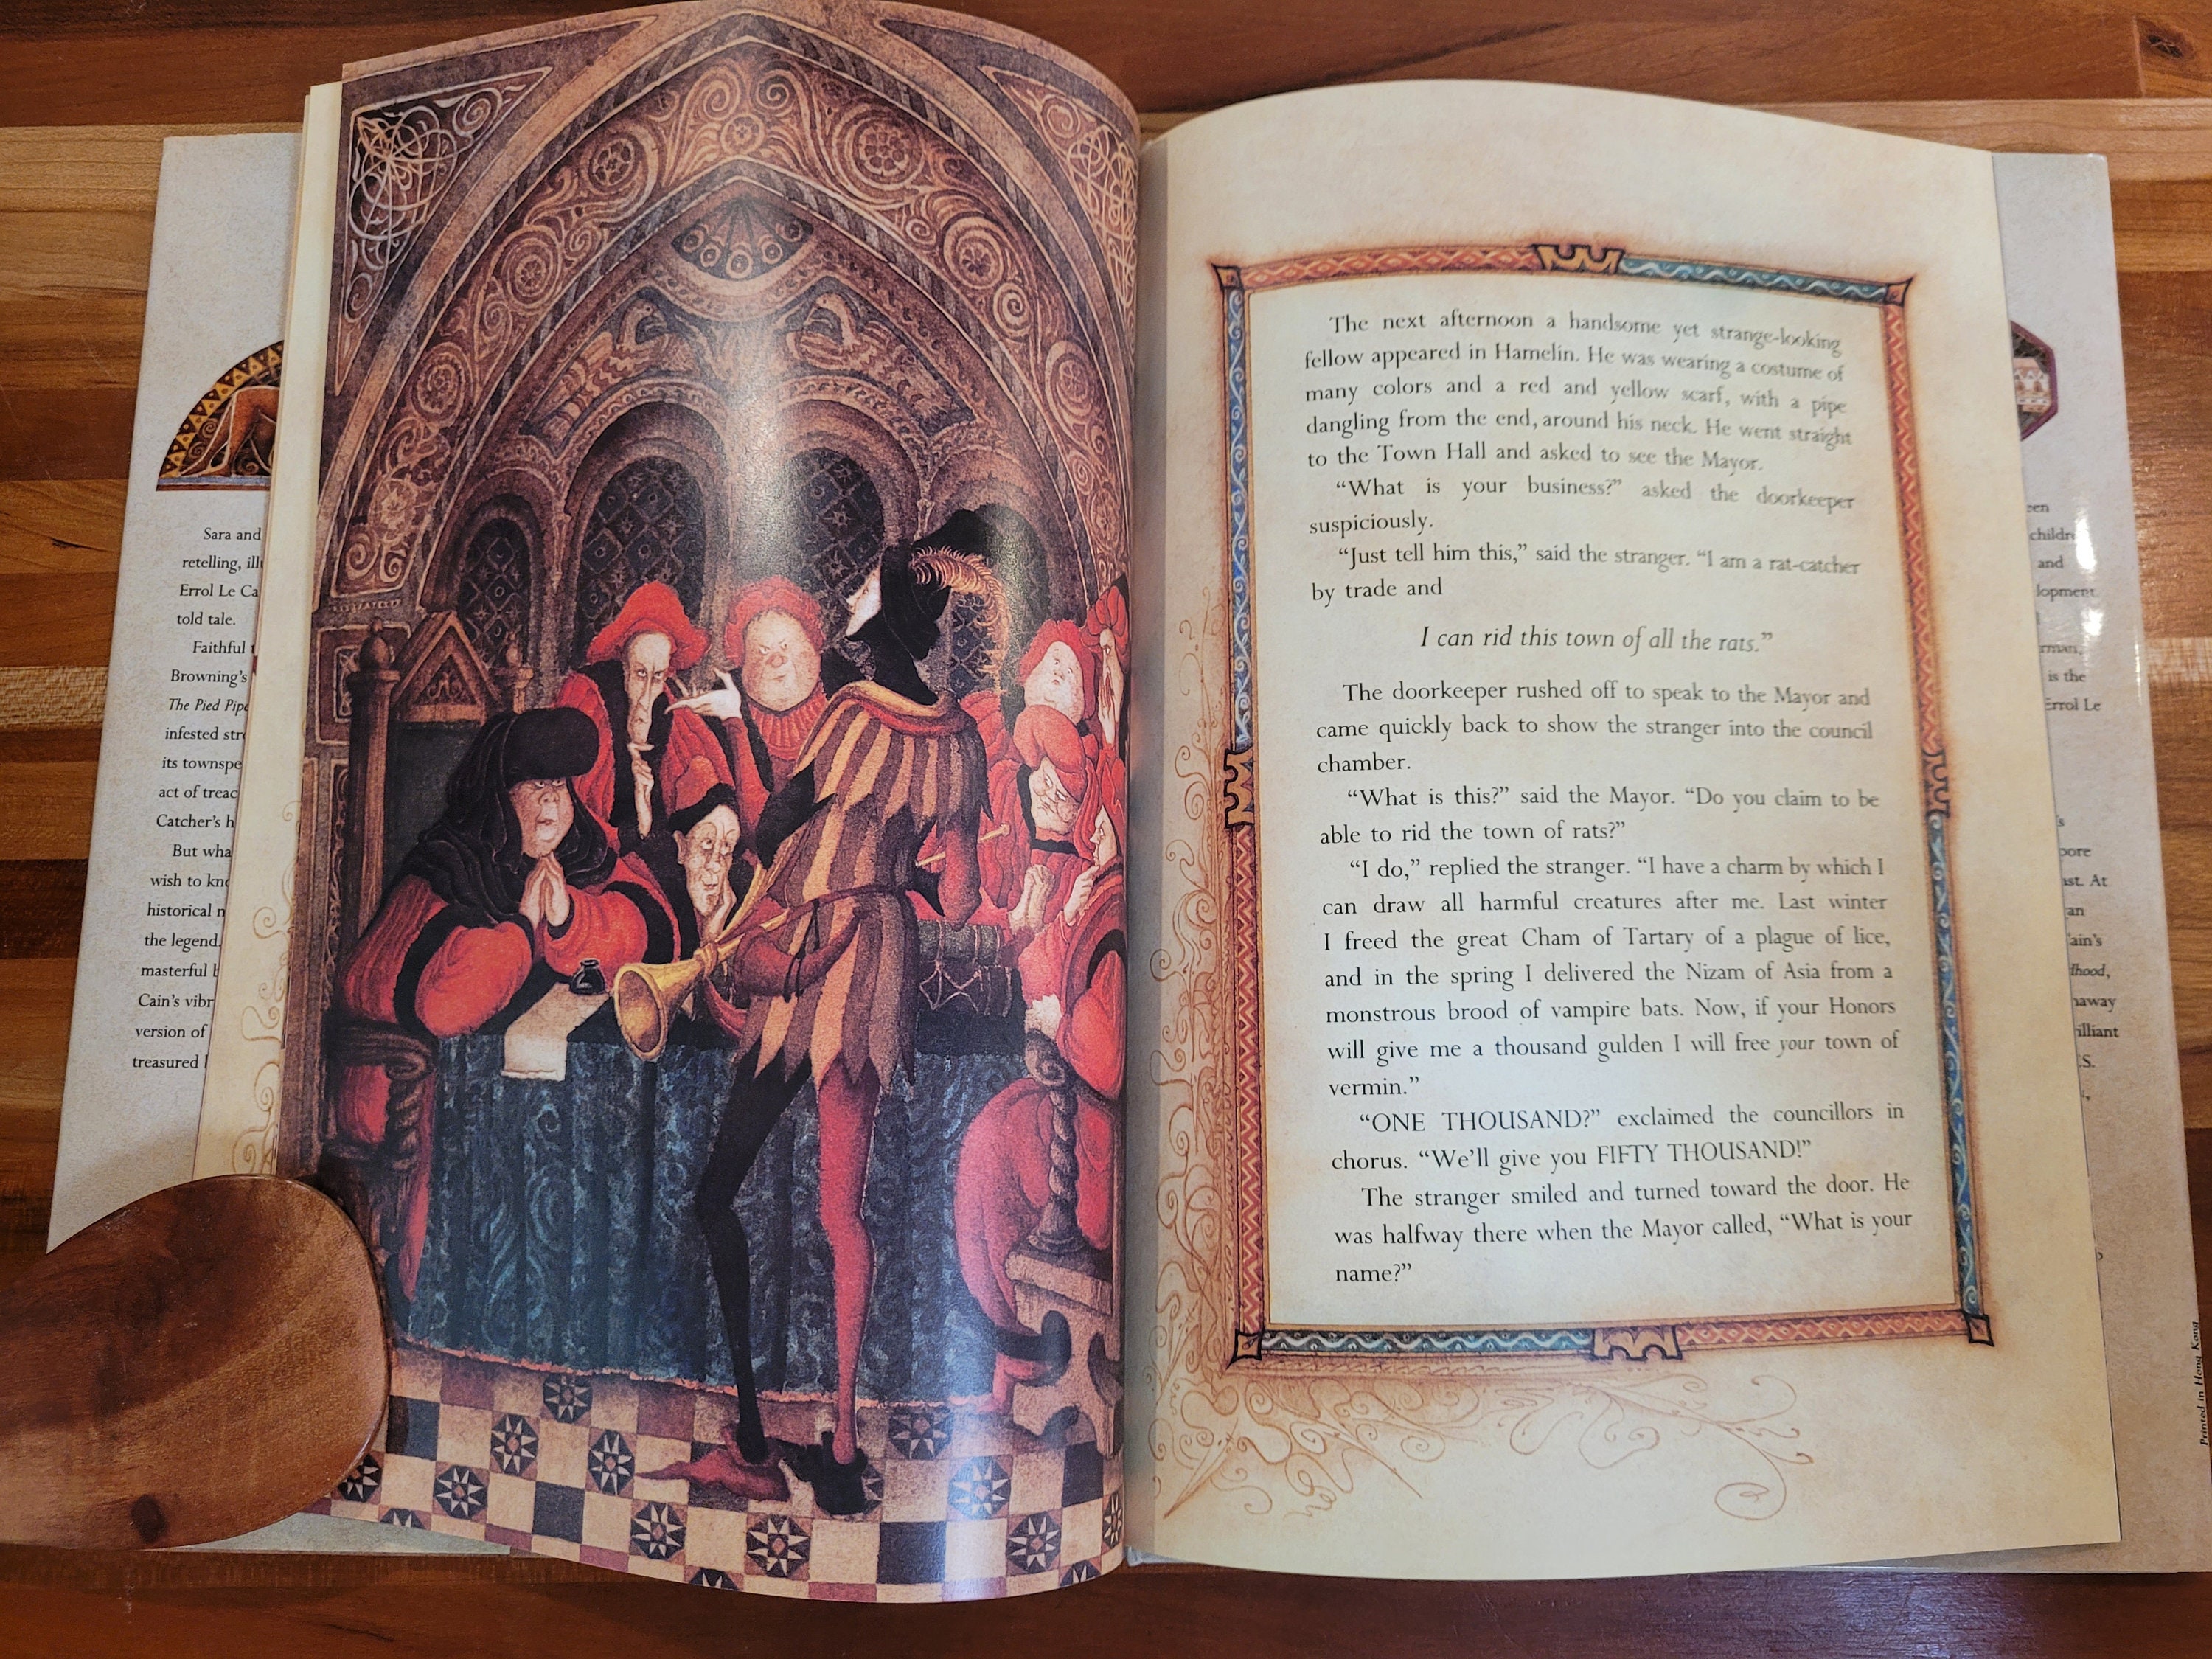 Sara and
retelling,
Errol Le Ca
told tale.
Faithful
Browning's
The Pied Pipe
infested
its townspe
act of treac
Catcher's h
But wha
wish to kno
historical
the legend.
masterful
Cain's vibr
version of
treasured
The next afternoon a handsome yet strange-looking
fellow appeared in Hamelin. He was wearing a costume of
many colors and a red and yellow scarf, with a pipe
dangling from the end, around his neck. He went straight
to the Town Hall and asked to see the Mayor.
“What is your business?” asked the doorkeeper
suspiciously.
“Just tell him this,” said the stranger. “I am a rat-catcher
by trade and
I can rid this town of all the rats.”
The doorkeeper rushed off to speak to the Mayor and
came quickly back to show the stranger into the council
chamber.
“What is this?” said the Mayor. “Do you claim to be
able to rid the town of rats?”
“I do,” replied the stranger. “I have a charm by which I
can draw all harmful creatures after me. Last winter
I freed the great Cham of Tartary of a plague of lice,
and in the spring I delivered the Nizam of Asia from a
monstrous brood of vampire bats. Now, if your Honors
will give me a thousand gulden I will free your town of
vermin.”
“ONE THOUSAND?” exclaimed the councillors in
chorus. “We’ll give you FIFTY THOUSAND!”
The stranger smiled and turned toward the door. He
was halfway there when the Mayor called, “What is your
name?”
childr
and
lopment.
is the
Errol Le
pore
ast. At
an
ain's
lhood,
naway
illiant
S.
Printed in Hong Kong